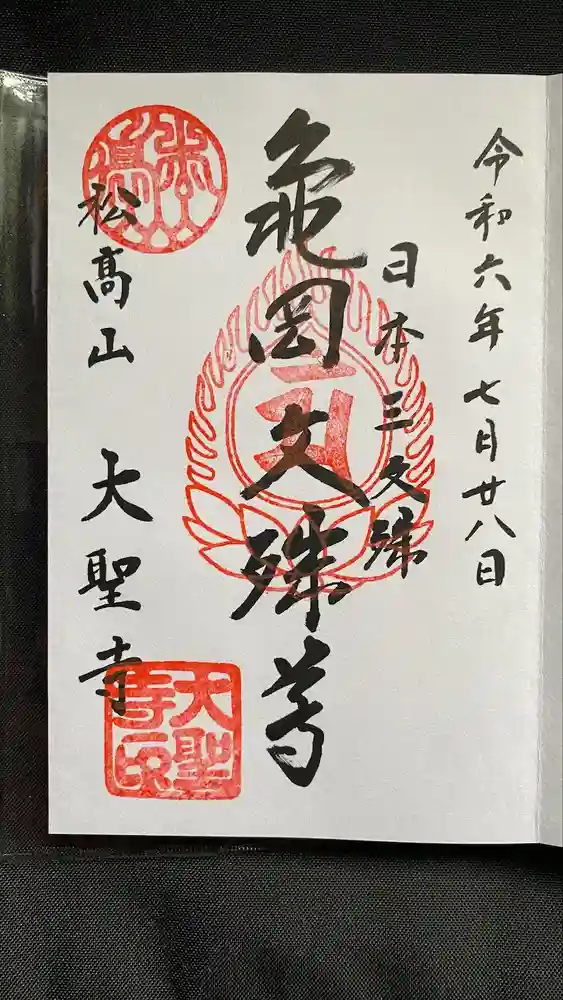 令和六年七月廿八日
日本三文殊
亀岡文殊尊
松高山 大聖寺
大聖寺印